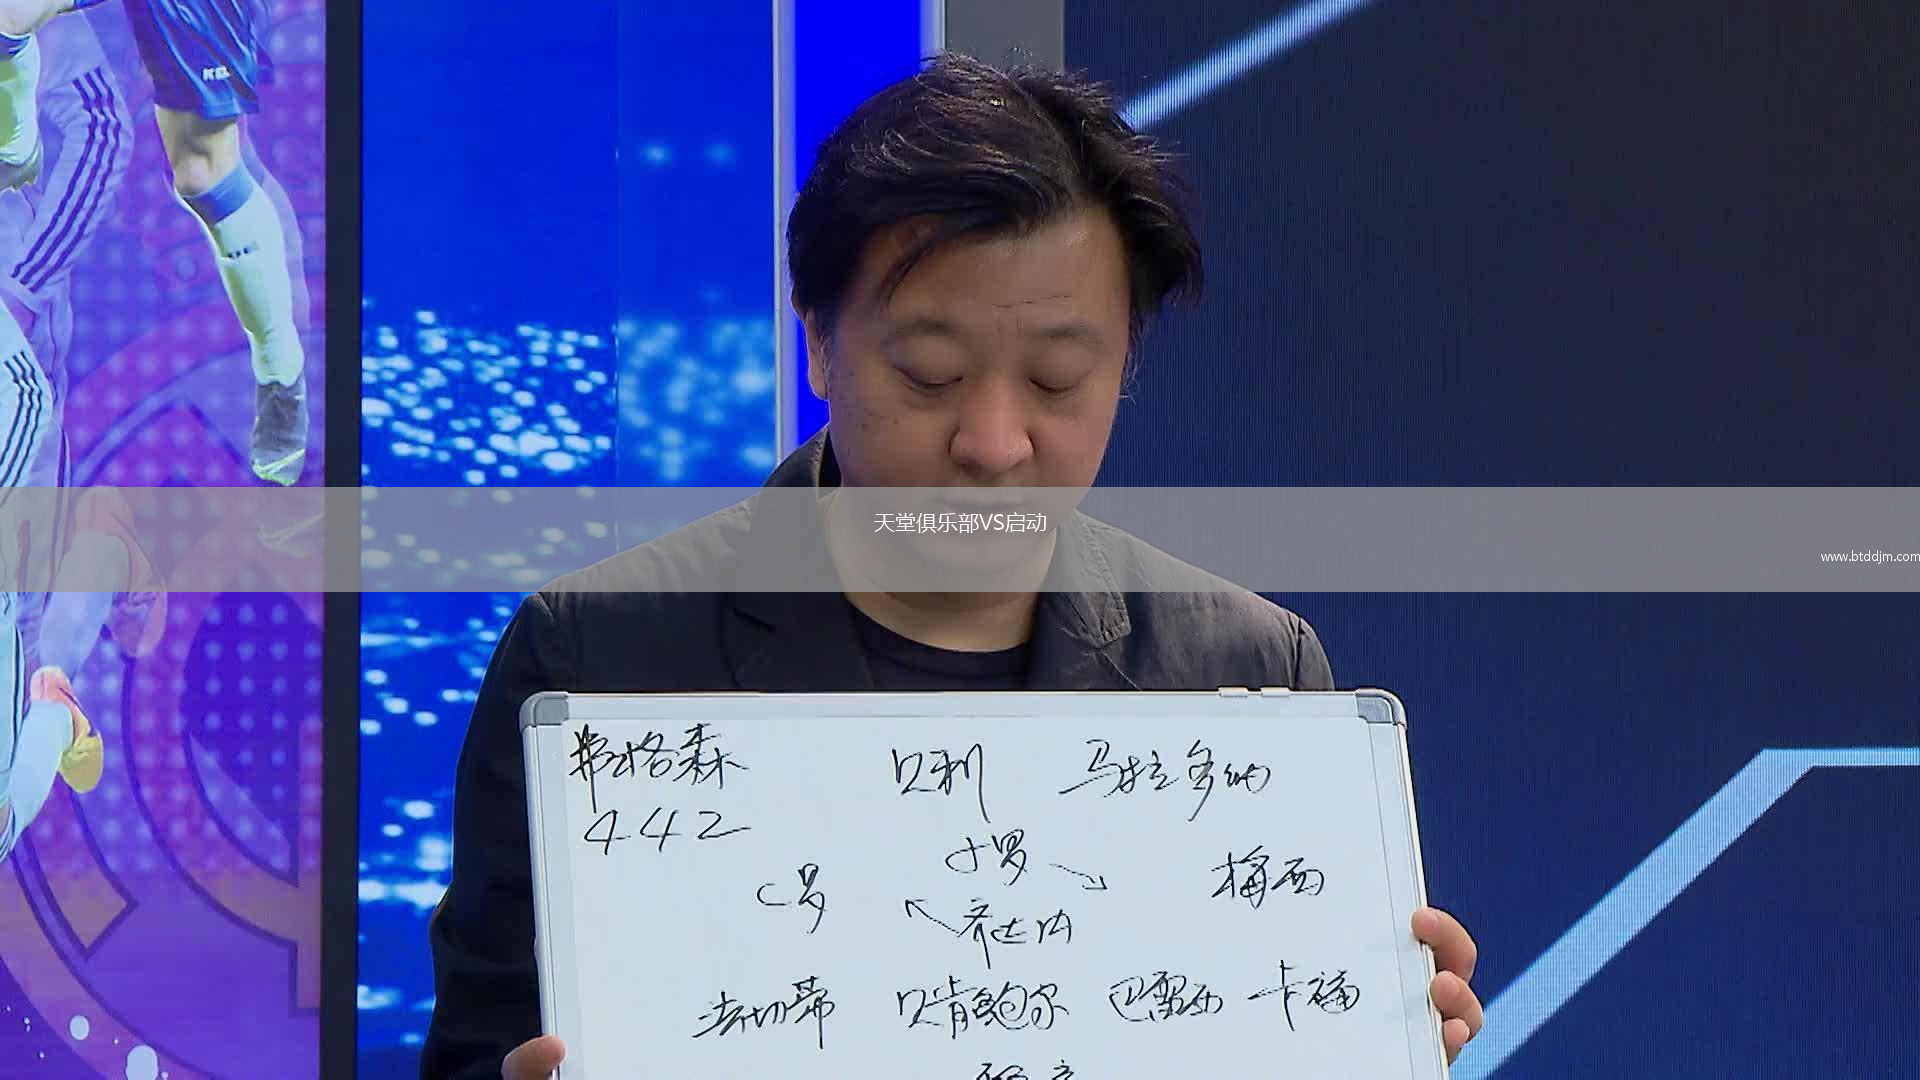 天堂俱乐部VS启动
www.btddjm.com
弗格森 贝利 马拉多纳
442
小罗
C罗 梅西
齐达内
法切蒂 贝肯鲍尔 巴雷西 卡福